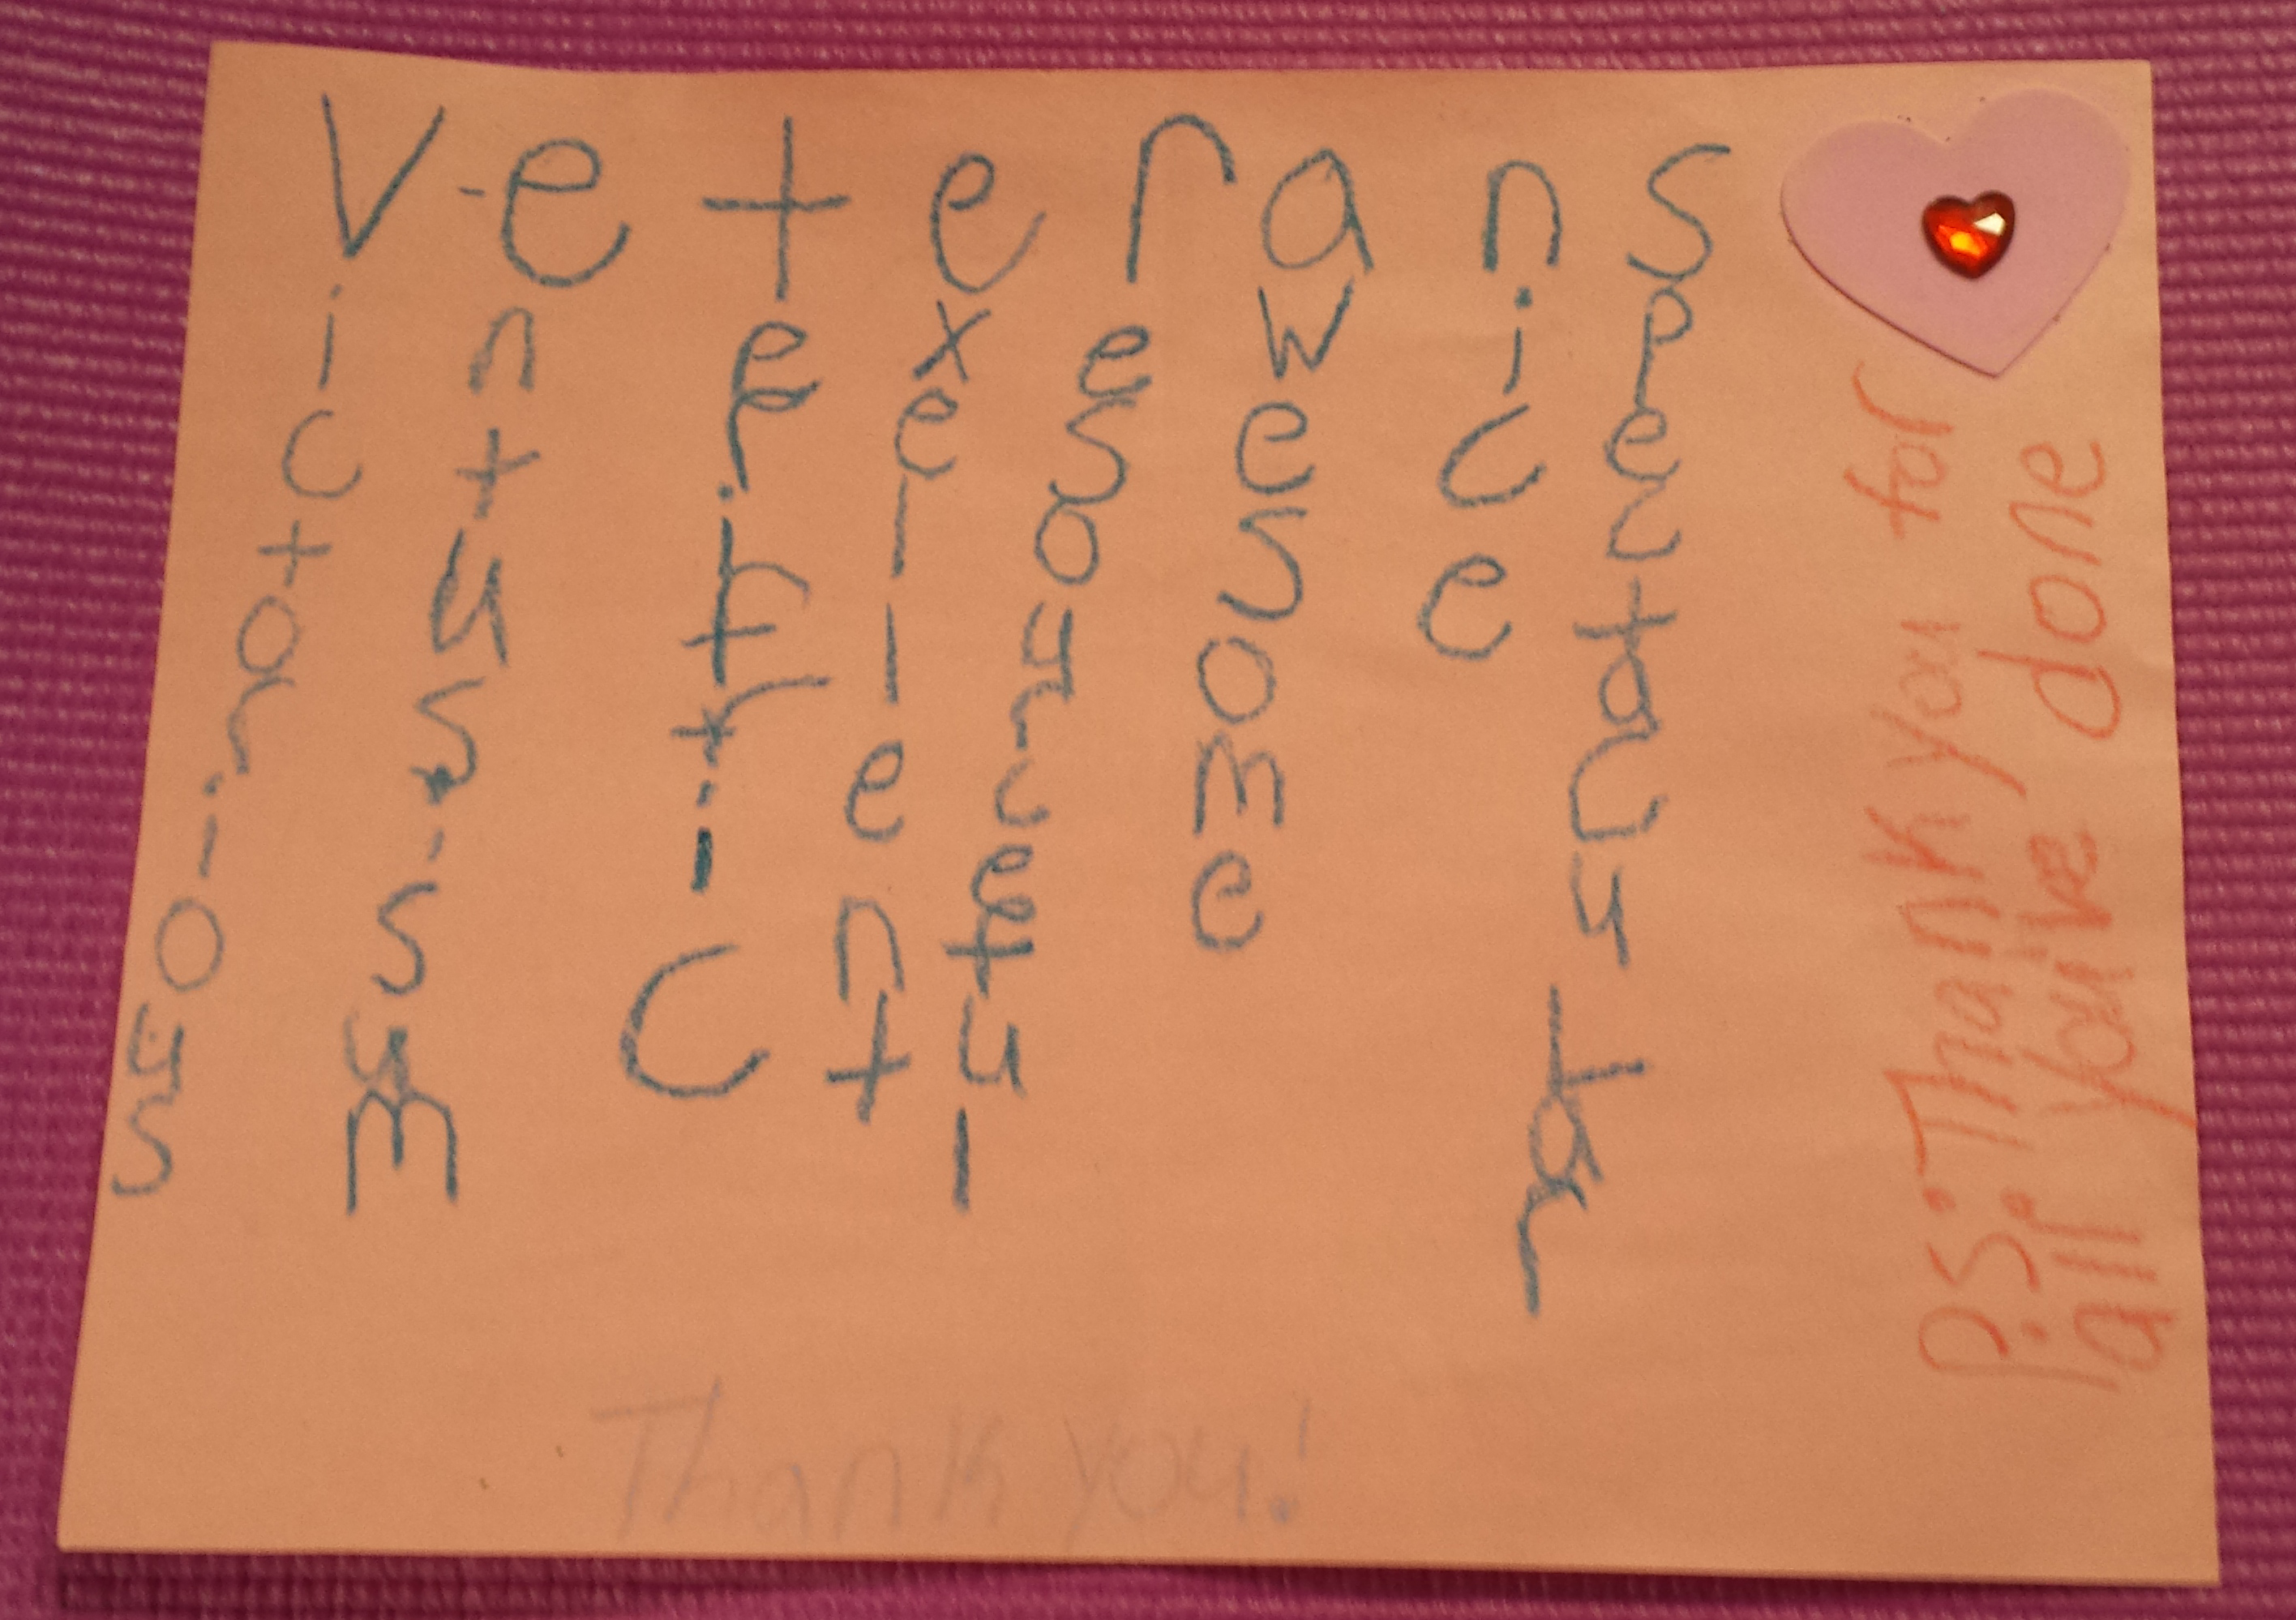 Veterans
Victorious
entusisum
teriffic
exellent
resourceful
awesome
nice
spectacular
P.S. Thank you for
all you've done
Thank you!